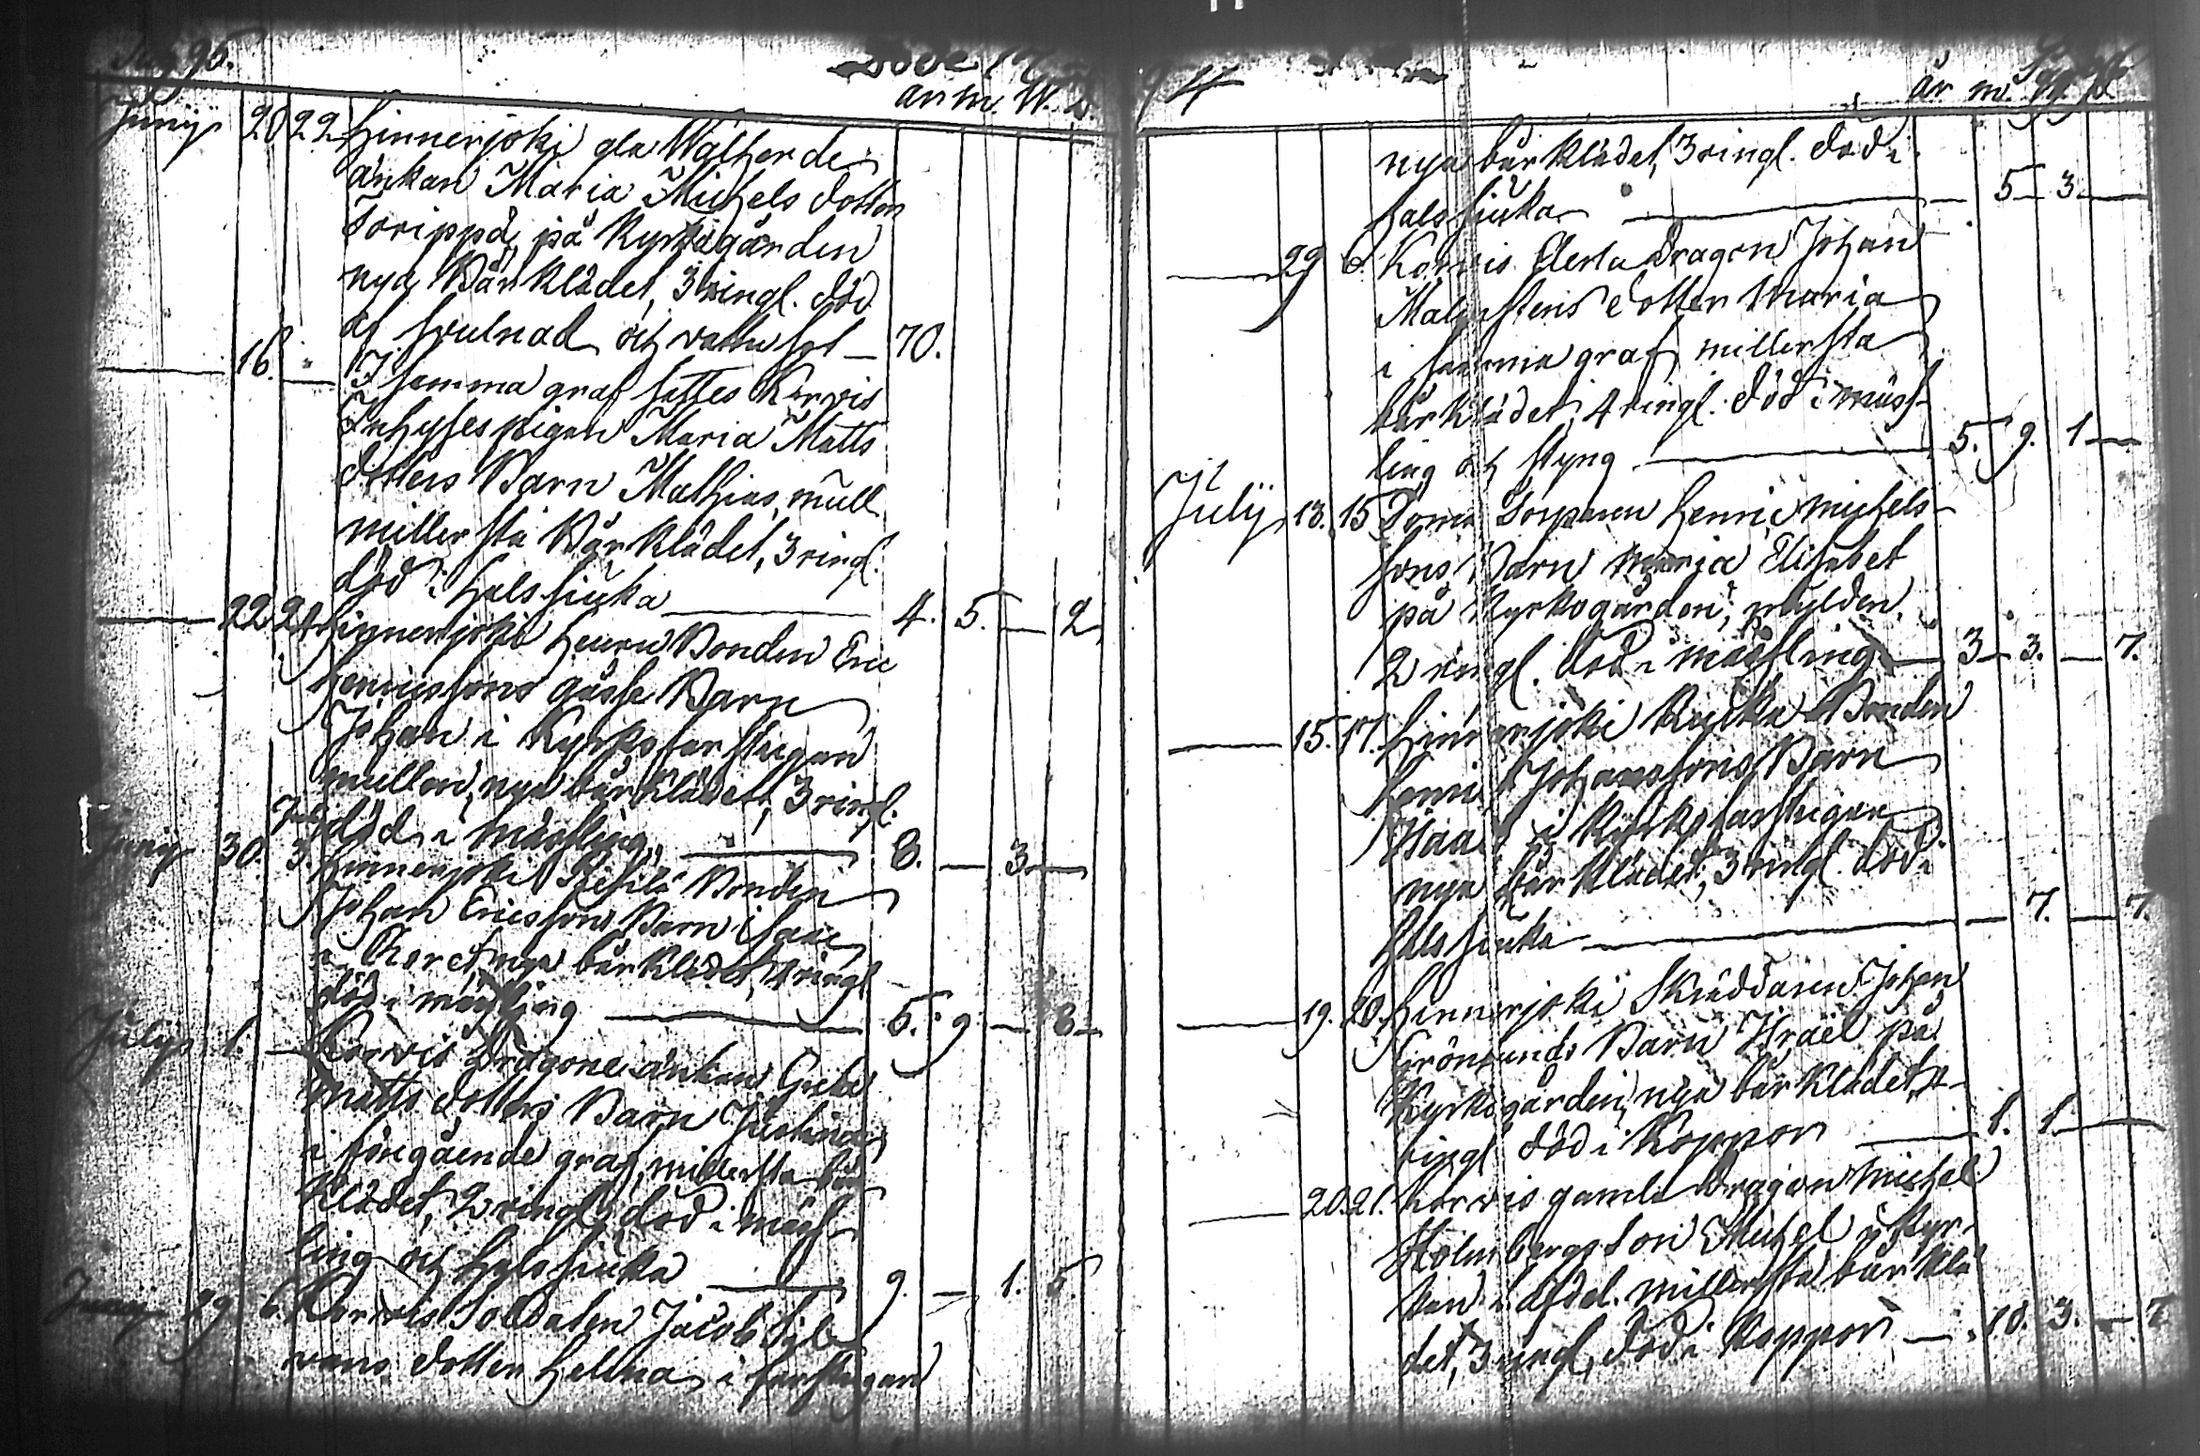 Döde 17
år m. W. d
Junij 20 22 Hinnerjoki gla Wälther de
änkan Maria Michels dotter
Torippa, på Kyrkogården
nya Bårklädet, 3 ringl. död
af svulnad och vattusot — 70.
16. I samma graf sattes Korvis
Inhyses pigan Maria Matts
dotters Barn Mathias, mull
millersta Bårklädet, 3 ringl.
död i halssiuka — 4. 5. — 2
22 24 Hinnerjoki Heuru Bonden Eric
Henricssons gåsse Barn
Johan i Kyrko farstugan
mullen, nya bårklädet, 3 ringl.
död i mässling, — 8. — 3 —
Junij 30. Julij 3. Hinnerjoki Bonden
Johan Ericssons Barn Isaac
i Choret nya bårklädet, 4 ringl
död i mässling — 5. 9 — 3 —
Julij 1. Korvis Dragone änkan Greta
Matts dotters Barn Justina
i föregående graf, millersta bår
klädet, 2 ringl. död i mäss-
ling och halssiuka — 9. — 1. 5.
Junij 29 6. Korvis Soldaten Jacob
dotter Helena i farstugan
4
år m. W. d
nya bårklädet, 3 ringl. död i
halssiuka — 5 — 3 —
29 6. Korvis Dragon Johan
Malmstens dotter Maria
i samma graf millersta
bårklädet, 4 ringl. död i mäss-
ling och styng — 5. 9. 1 —
Julij 13. 15 Torparen Henric Michels-
sons Barn Maria Elisabet
på Kyrkogården, mylden
2 ringl. död i mässling — 3 — 3. — 7.
15. 17. Hinnerjoki Bonden
Henric Johanssons Barn
Isaac i Kyrko farstugan
nya bårklädet, 3 ringl. död i
halssiuka — 7. — 7.
19. 20. Hinnerjoki Skräddaren Johan
Grönlunds Barn Israel på
Kyrkogården, nya bårklädet,
ringl död i Koppor — 1. 1. —
20. 21. Korvis gamla Dragon Michel
Holmbergs son Michel i Kyr-
kan millersta bårklä
det, 3 ringl, död i Koppor — 10. 3. — 7